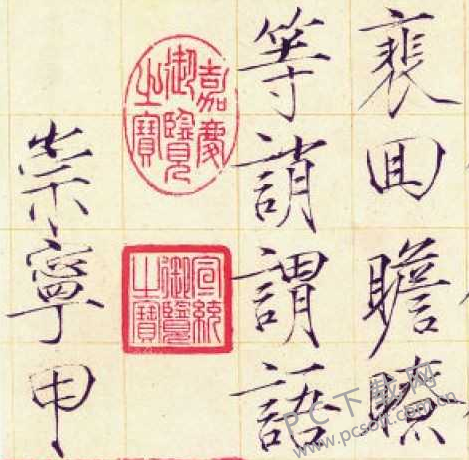 裵回瞻
等誚謂語
嘉慶御覽之寶
宣統御覽之寶
崇寧甲
PC下载网
www.pcsoft.com.cn